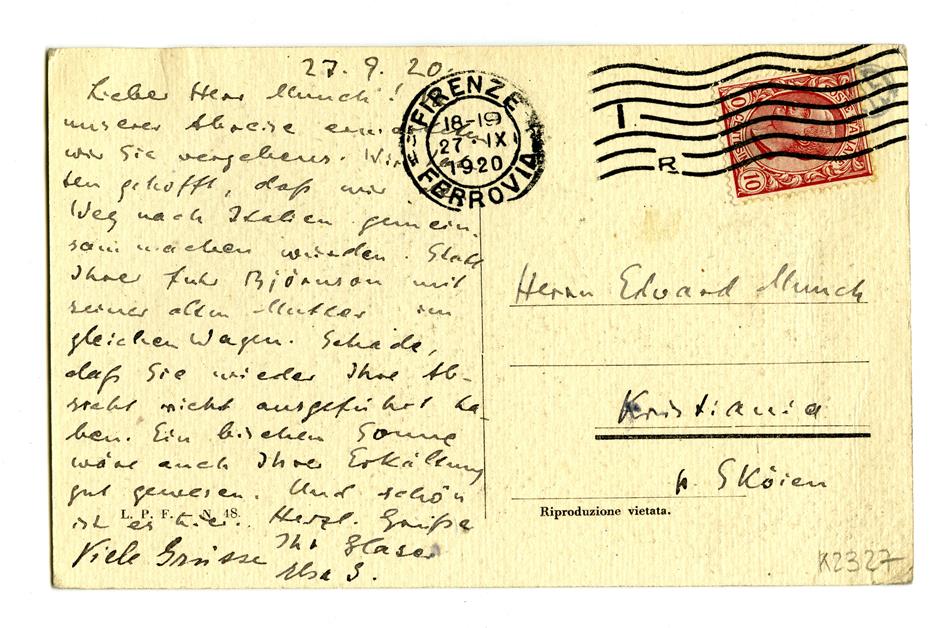 27. 9. 20.
Lieber Herr Munch!
unserer Abreise
wir Sie vergebens. Wir
ten gehofft, daß wir
Weg nach Italien gemein-
sam machen würden. Statt
Ihrer fuhr Björnson mit
seiner alten Mutter im
gleichen Wagen. Schade,
daß Sie wieder Ihre Ab-
sicht nicht ausgeführt ha-
ben. Ein bischen Sonne
wäre auch Ihrer Erkältung
gut gewesen. Und schön
ist es hier. Herzl. Grüße
Ihr Glaser
Viele Grüsse
Elsa G.
L. P. F. — N. 48.
FIRENZE
18-19
27·IX
1920
FERROVIA
I.
R
10
Herrn Edvard Munch
Kristiania
p. Sköien
Riproduzione vietata.
K2327